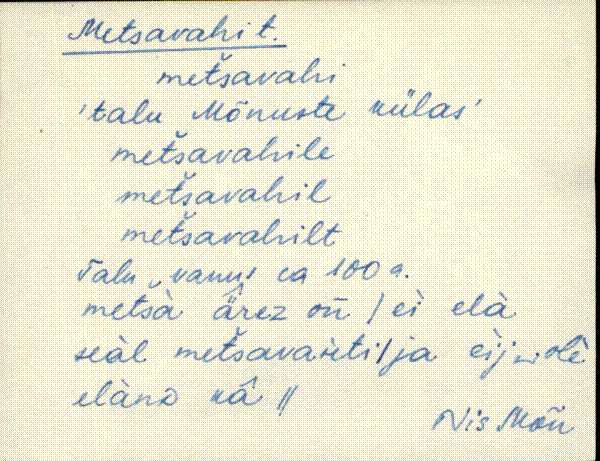 Metsavahi t.
metšavahi
'talu Mõnuste külas'
metšavahile
metšavahil
metšavahilt
Talu vanus ca 100 a.
metsà ä̂rez on̄ / ei elà
seàl metšavahti / ja ei olè
elànò kâ //
Nis Mõn